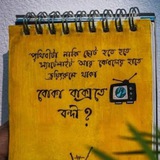 পৃথিবীটা নাকি ছোট হতে হতে
স্যাটেলাইট আর কেবলের হাতে
ড্রয়িংরুমে রাখা
বোকা বাক্সতে
বন্দী ?